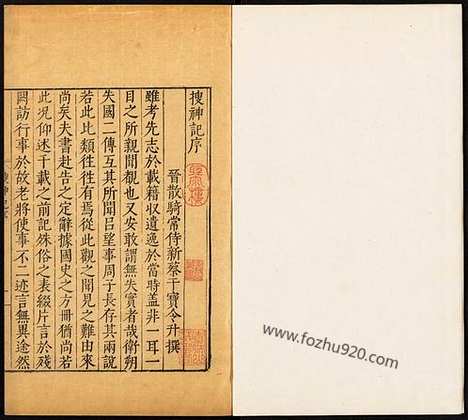 搜神記序
晉散騎常侍新蔡干寶令升撰
雖考先志於載籍收遺逸於當時蓋非一耳一
目之所親聞覩也又安敢謂無失實者哉衛朔
失國二傳互其所聞呂望事周子長存其兩說
若此比類往往有焉從此觀之聞見之難由來
尚矣夫書赴告之定辭據國史之方冊猶尚若
此況仰述千載之前記殊俗之表綴片言於殘
闕訪行事於故老將使事不二迹言無異途然
www.fozhu920.com